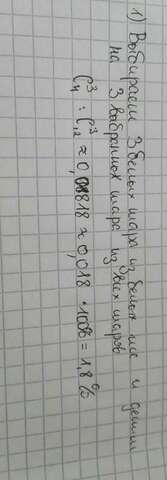 1) Выбираем 3 белых шара из белых и делим
на 3 выбранных шара из всех шаров
C₄³ : C₁₂³ ≈ 0,01818 ≈ 0,018 * 100% = 1,8%